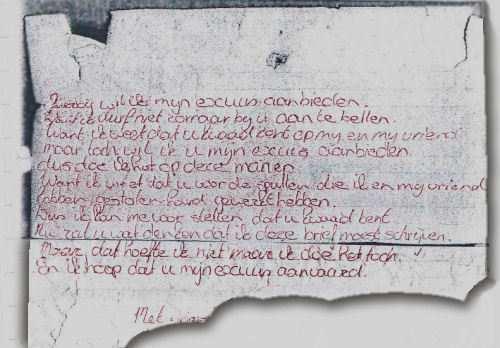 wil ik mijn excuus aanbieden.
durf niet bij u aan te bellen.
Want ik weet dat u kwaad bent op my en my vriend
maar toch wil ik u mijn excuus aanbieden
dus doe ik het op deze manier
Want ik weet dat u voor de spullen die ik en my vriend
hebben gestolen hard gewerkt hebben.
Dus ik kan me voor stellen dat u kwaad bent
Nu zal u wel denken dat ik deze brief moest schrijven.
Maar, dat hoefte ik niet maar ik doe het toch.
En ik hoop dat u mijn excuus aanvaard.
Met